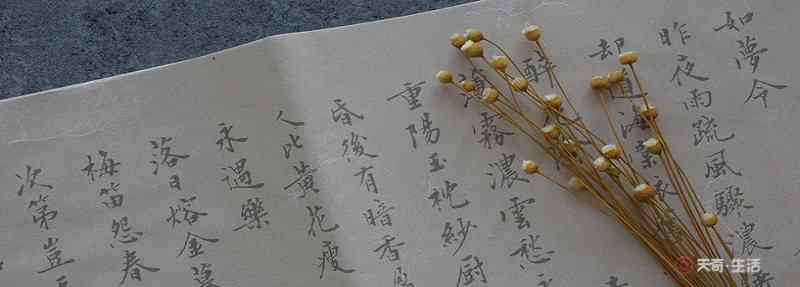 如夢令
昨夜雨疏風驟濃
却道海棠依
醉花
薄霧濃雲愁
重陽玉枕紗厨
昏後有暗香
人比黃花瘦
永遇樂
落日熔金暮
梅笛怨春
次第豈
天奇·生活